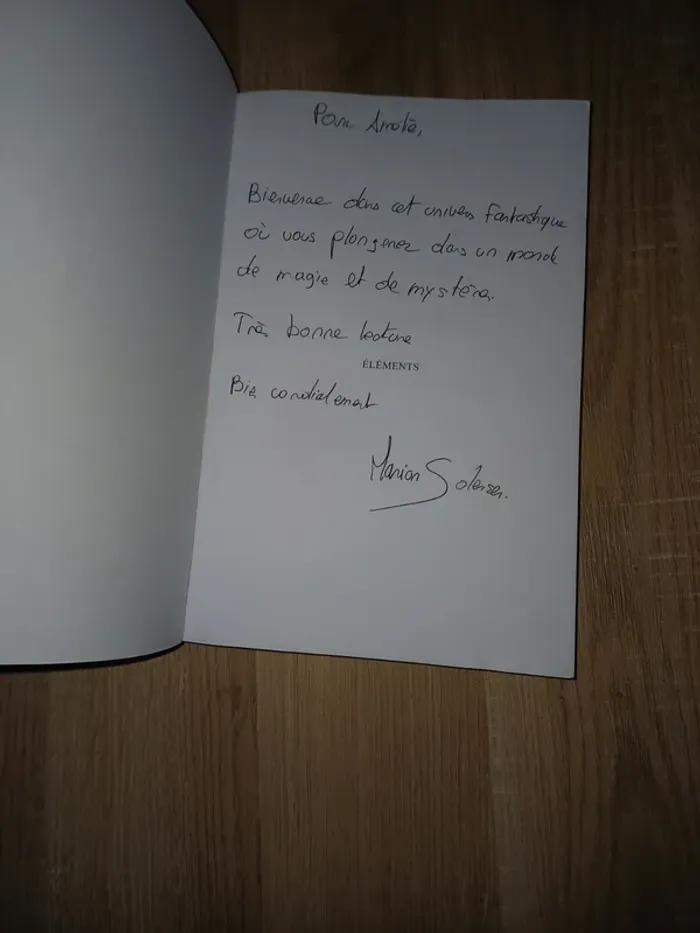 Pour
Bienvenue dans cet univers fantastique
où vous plongerez dans un monde
de magie et de mystère.
Très bonne lecture
ÉLÉMENTS
Bien cordialement
Marion Solensen.